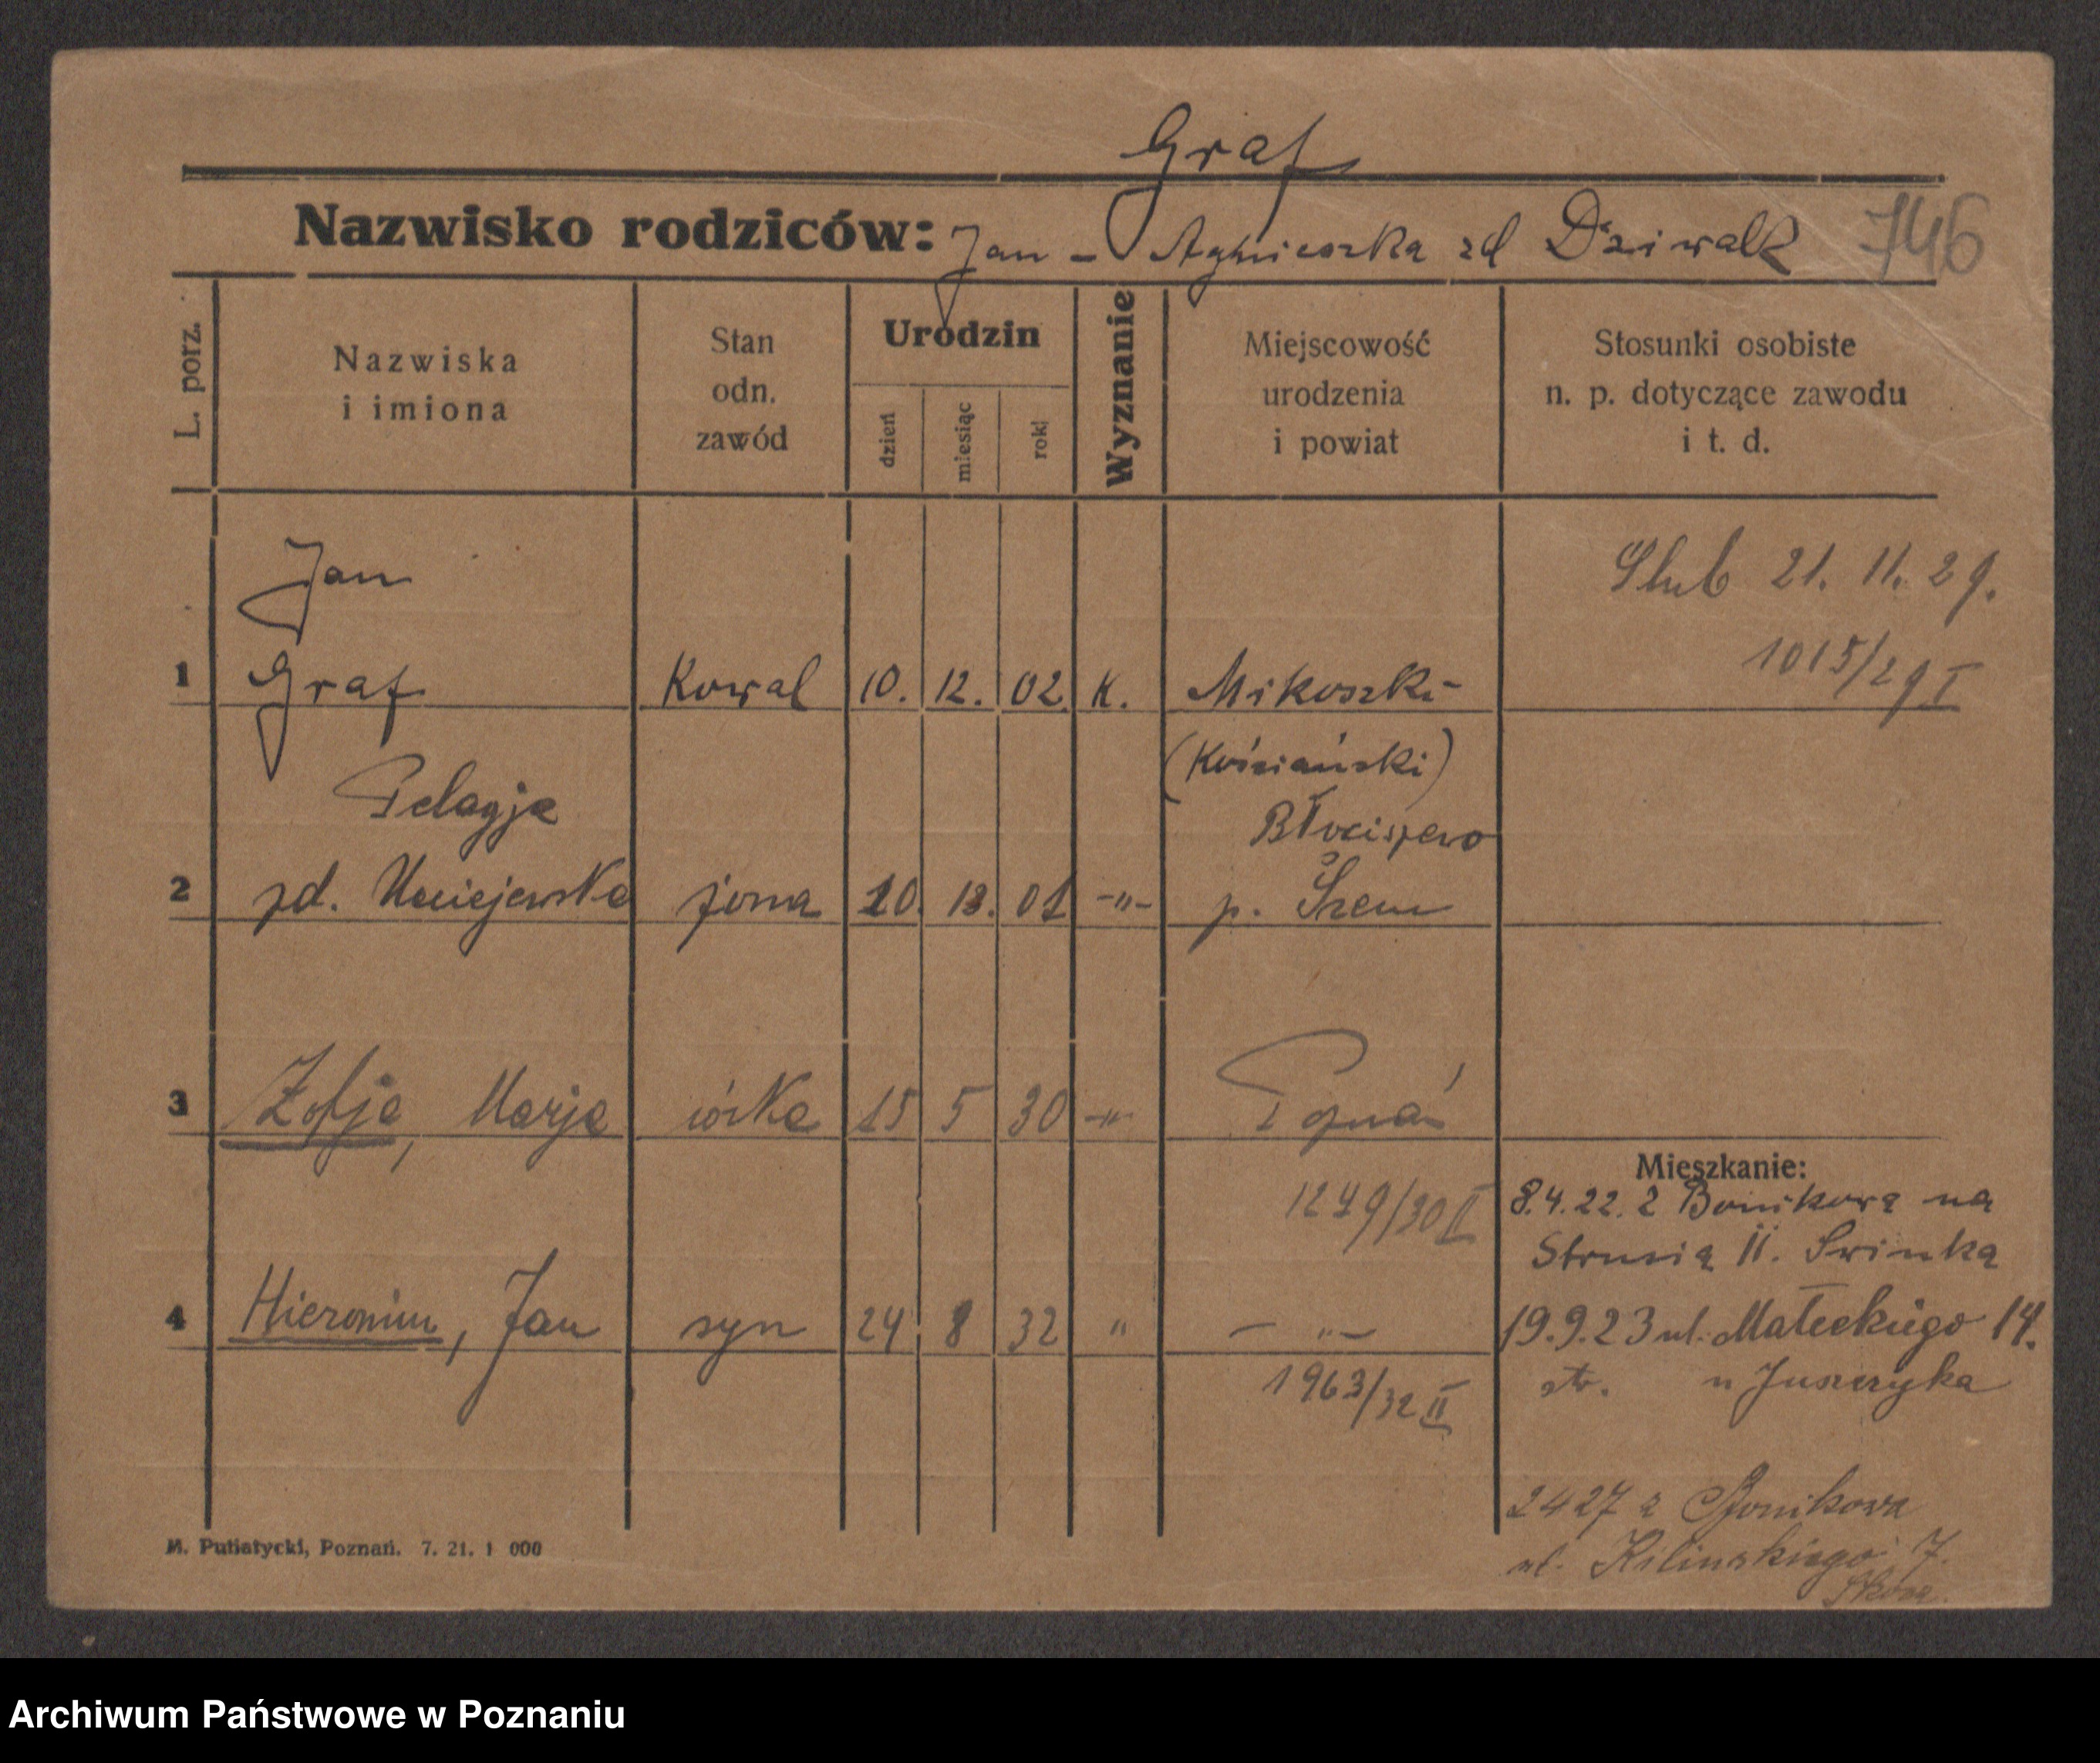 Graf
Nazwisko rodziców: Jan - Agnieszka zd Dziwalk 746
L. porz.
Nazwiska
i imiona
Stan
odn.
zawód
Urodzin
dzień
miesiąc
rok
Wyznanie
Miejscowość
urodzenia
i powiat
Stosunki osobiste
n. p. dotyczące zawodu
i t. d.
Jan
Ślub 21. 11. 29.
1015/29 I
1 Graf Kowal 10. 12. 02. K. Mikoszki
(Kościański)
Pelagja
Błociszewo
2 zd. Maciejewska żona 10. 12. 01 -"- p. Śrem
3 Zofja, Marja córka 15 5 30 -"- Poznań
1249/30 II
Mieszkanie:
8.4.22. z Bonikowa na
Strusia 11. Swinka
4 Hieronim, Jan syn 24 8 32 " - " -
1963/32 II
19.9.23 ul. Małeckiego 14.
str. u Juszczyka
2427 z Bonikowa
ul. Kilinskiego 7.
M. Putiatycki, Poznań. 7. 21. 1 000
Archiwum Państwowe w Poznaniu